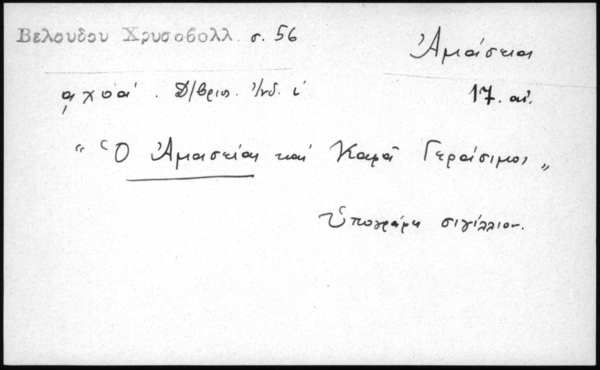 Βελουδου Χρυσοβολλ. σ. 56
Ἀμάσεια
͵αχοα΄. Δ/βριος. Ἰνδ. ι΄
17. αἰ.
"Ὁ Ἀμασείας καὶ Καφᾶ Γεράσιμος"
Ὑπογράφει σιγίλλιον.